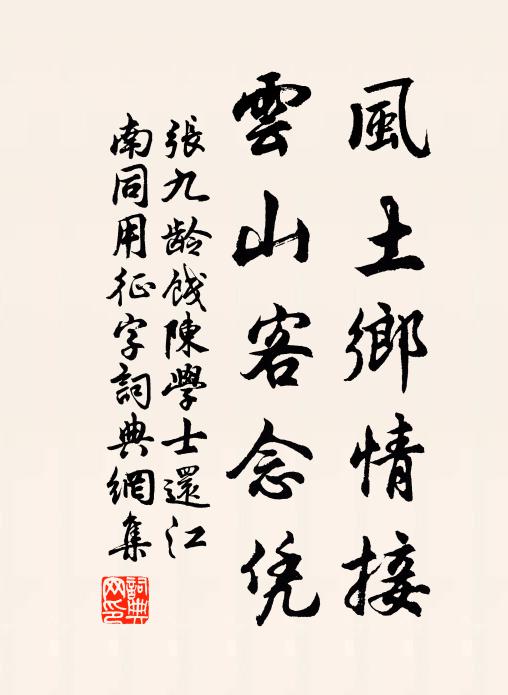 風土鄉情接
雲山客念凭
張九龄餞陳學士還江
南同用征字詞典網集
詞典
网印